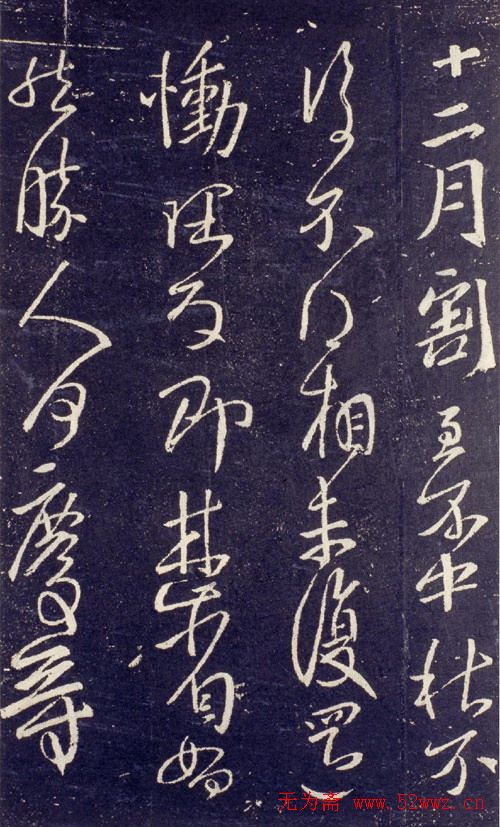 十二月割至不中秋不
復不得相未復還
慟理為即甚省如
然勝人何慶等
无为斋 www.52wwz.cn